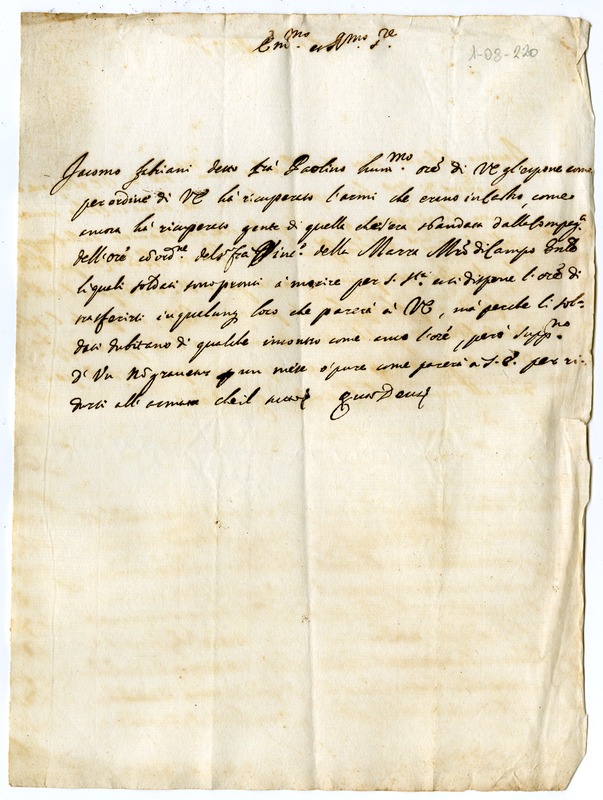 Em.mo et R.mo S.re
1-03-220
Jacomo Fabiani detto frà Paolino hum.mo ore di VE gl'espone come
per ordine di VE hà ricuperato l'armi che erano in Castro, come
ancora hà ricuperato gente di quella che s'era sbandata dalla Compag.a
dell'ore ed ord.ne del S.r fra Vinc.o della Marra Mro di Campo
li quali soldati sono pronti à morire per S. S.tà et si dispone l'ore di
trasferirsi in qualunq loco che parerà à VE, mà perche li sol-
dati dubitano di qualche incontro come anco l'ore, però supp.no
di Un per un mese ò pure come parerà a S. E. per ri-
dursi all che il tutto quas Deus